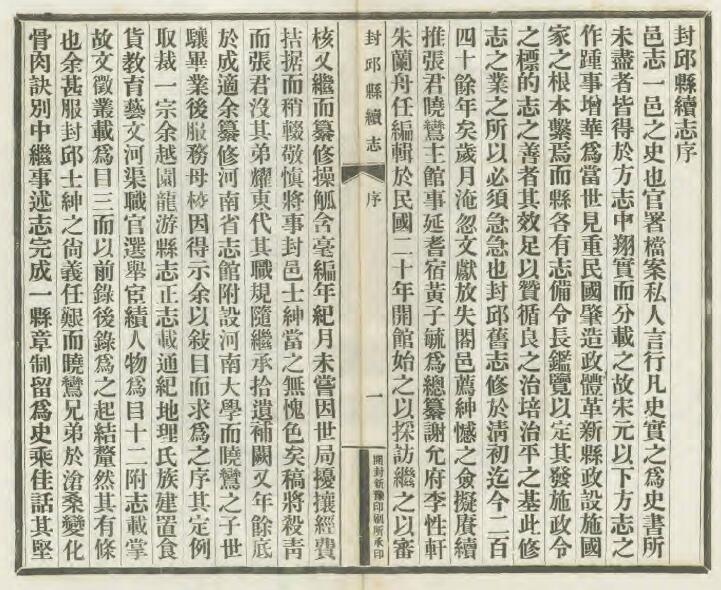 封邱縣續志序
邑志一邑之史也官署檔案私人言行凡史實之爲史書所
未盡者皆得於方志中翔實而分載之故宋元以下方志之
作踵事增華爲當世見重民國肇造政體革新縣政設施國
家之根本繫焉而縣各有志備令長鑑覽以定其發施政令
之標的志之善者其效足以贊循良之治培治平之基此修
志之業之所以必須急急也封邱舊志修於淸初迄今二百
四十餘年矣歲月淹忽文獻放失闔邑薦紳憾之僉擬賡續
推張君曉鸞主館事延耆宿黃子毓爲總纂謝允府李性軒
朱蘭舟任編輯於民國二十年開館始之以採訪繼之以審
封邱縣續志
序
一
開封新豫印刷所承印
核又繼而纂修操觚含毫編年紀月未嘗因世局擾攘經費
拮据而稍輟敬愼將事封邑士紳當之無愧色矣稿將殺靑
而張君沒其弟耀東代其職規隨繼承拾遺補闕又年餘底
於成適余纂修河南省志館附設河南大學而曉鸞之子世
驤畢業後服務母校因得示余以敍目而求爲之序其定例
取裁一宗余越園龍游縣志正志載通紀地理氏族建置食
貨敎育藝文河渠職官選舉宦績人物爲目十二附志載掌
故文徵叢載爲目三而以前錄後錄爲之起結釐然其有條
也余甚服封邱士紳之尙義任艱而曉鸞兄弟於滄桑變化
骨肉訣別中繼事述志完成一縣章制留爲史乘佳話其堅